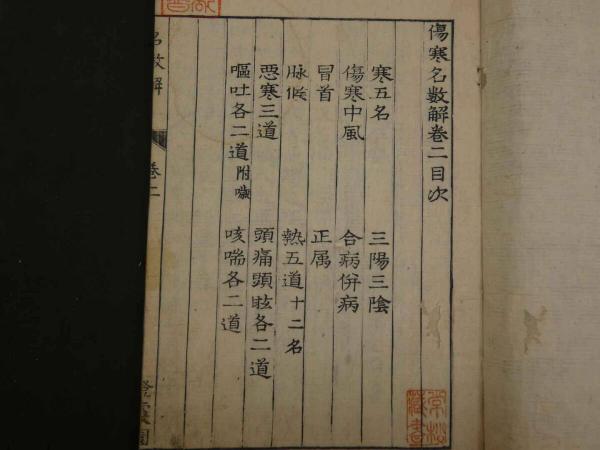 傷寒名數解卷二目次
寒五名 三陽三陰
傷寒中風 合病併病
冒首 正属
脉候 熱五道十二名
悪寒三道 頭痛頭眩各二道
嘔吐各二道附噦 咳喘各二道
名數解 卷二